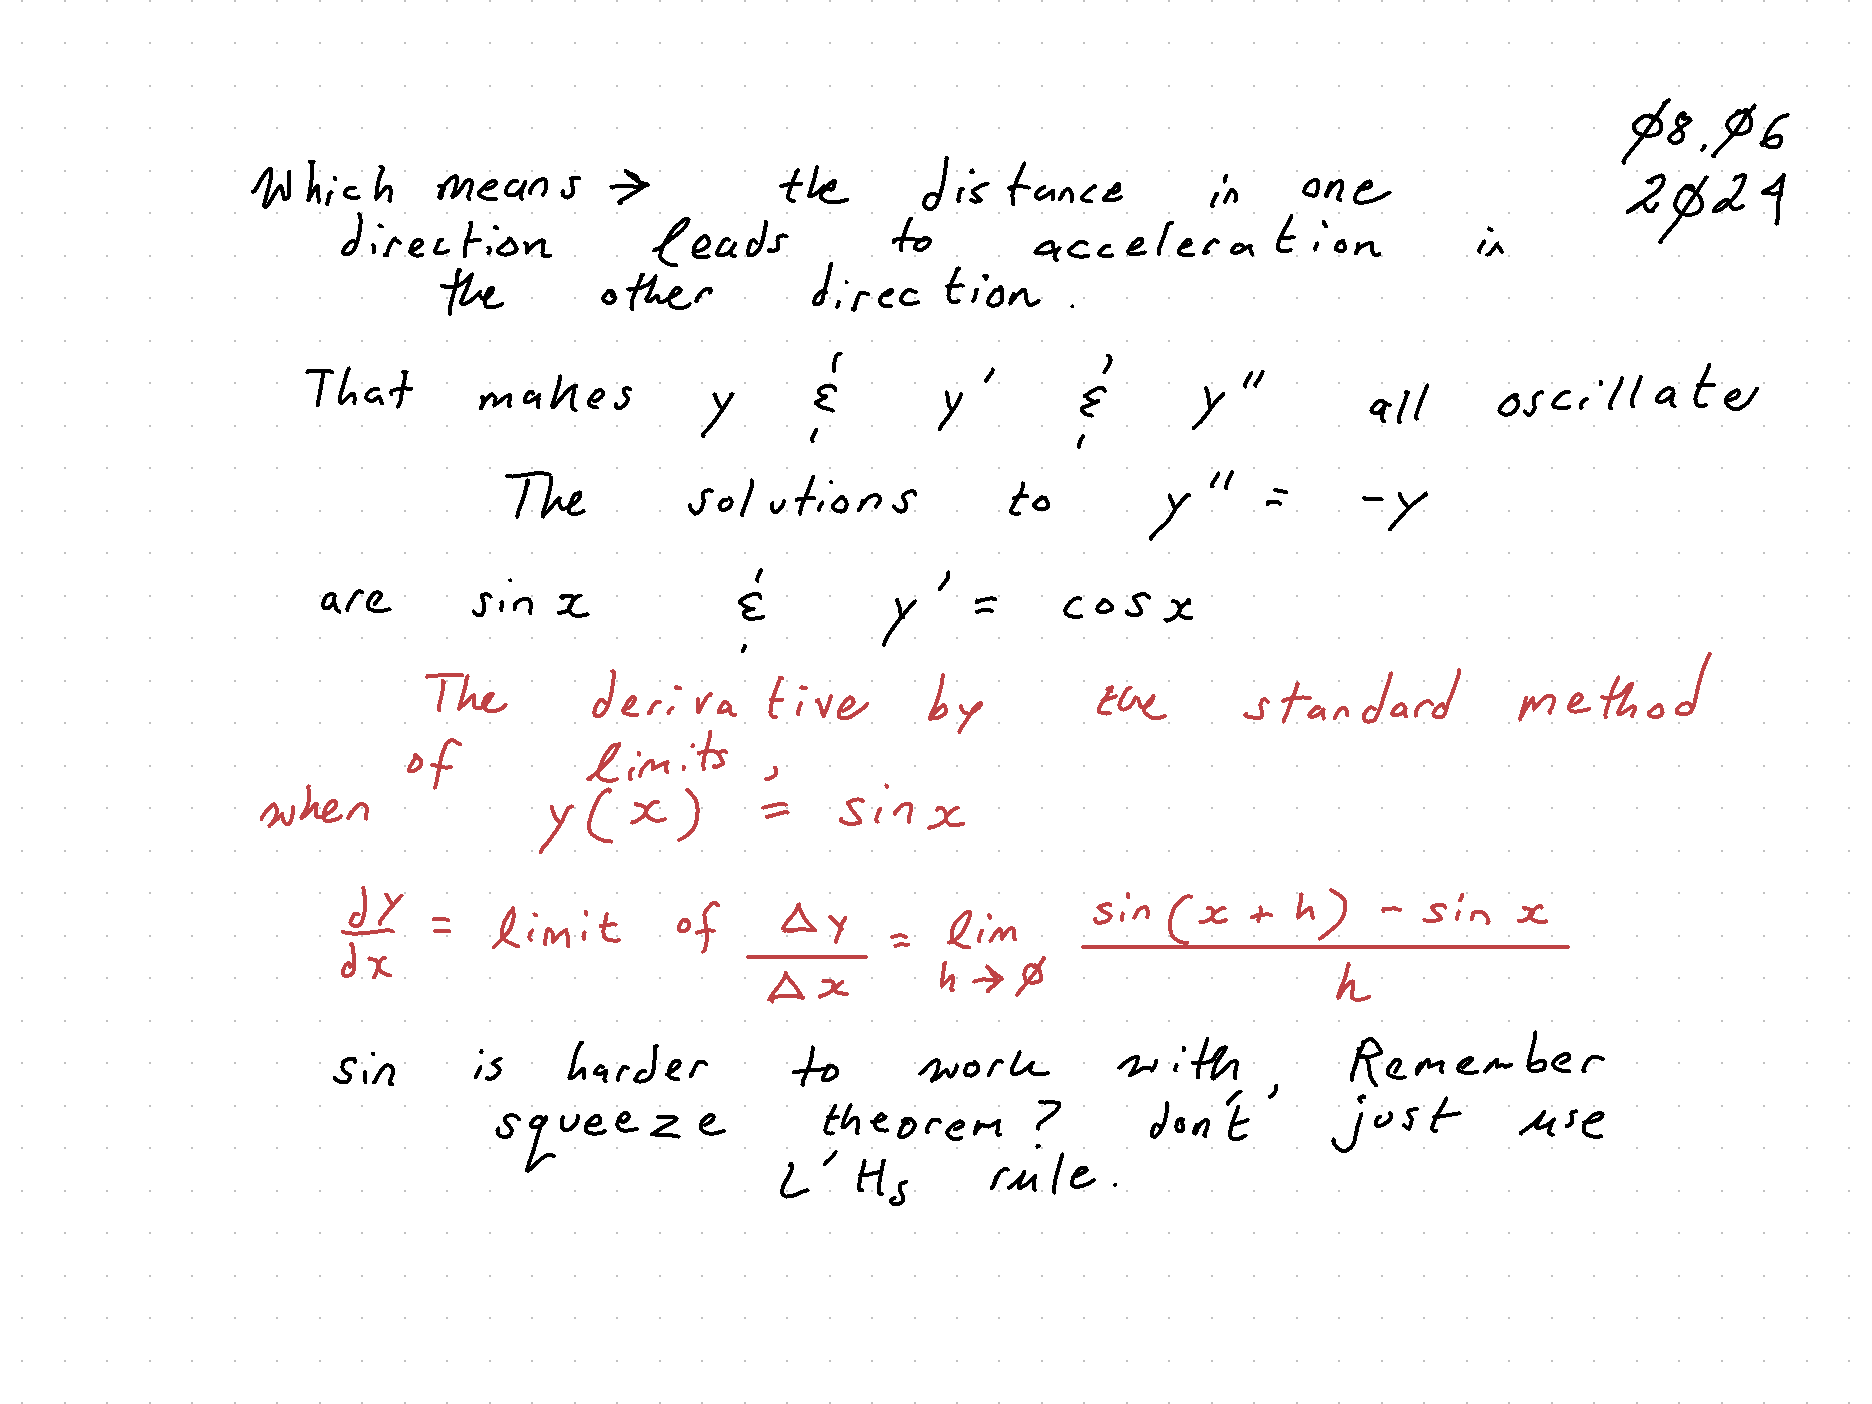 Ø8.Ø6
2Ø24
Which means → the distance in one
direction leads to acceleration in
the other direction.
That makes y & y' & y'' all oscillate
The solutions to y'' = -y
are sin x & y' = cos x
The derivative by the standard method
of limits,
when y(x) = sin x
dy/dx = limit of Δy/Δx = lim h→Ø sin(x+h) - sin x / h
sin is harder to work with, Remember
squeeze theorem? don't just use
L'Hs rule.